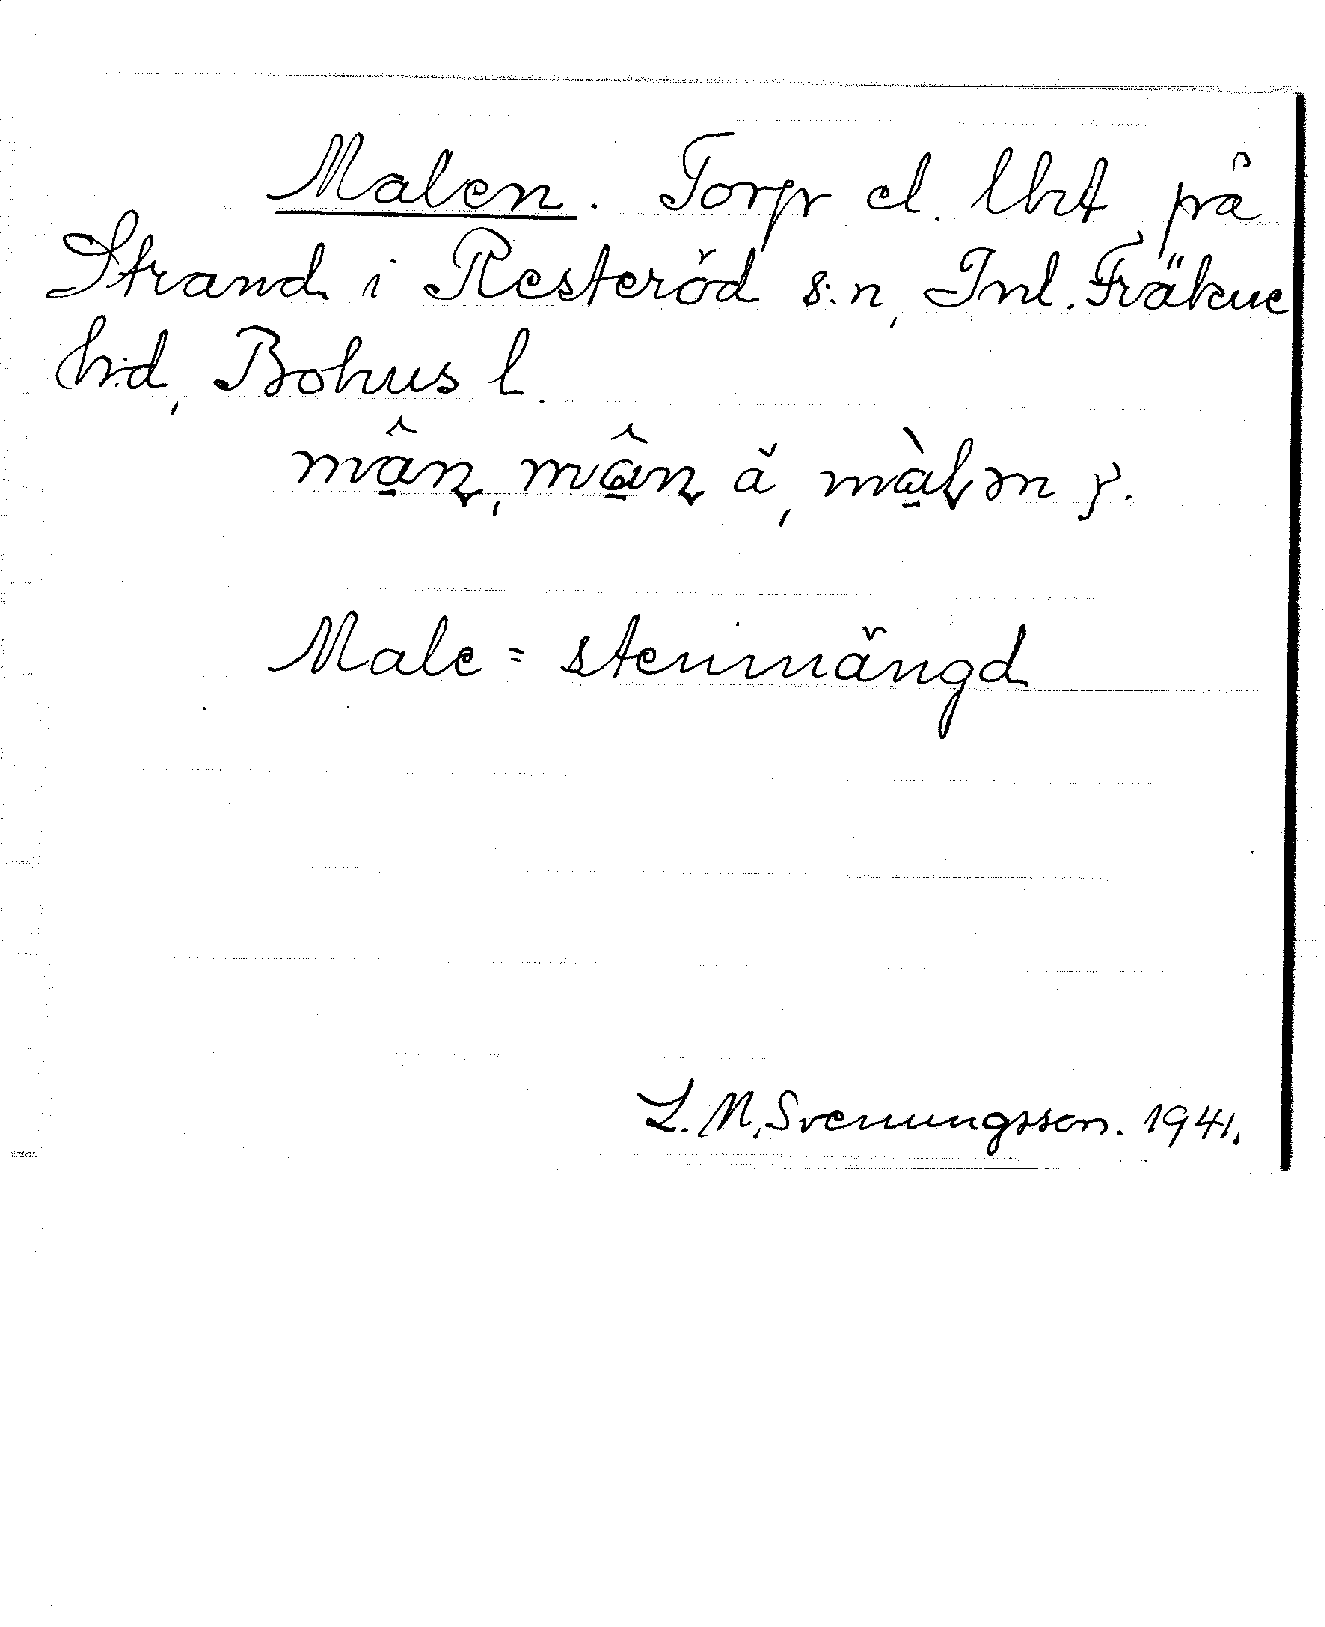 Malen. Torp el. lht på
Strand i Resteröd s:n, Inl. Fräkne
h:d, Bohus l.
Male = stenmängd
L. M. Svenungsson. 1941.